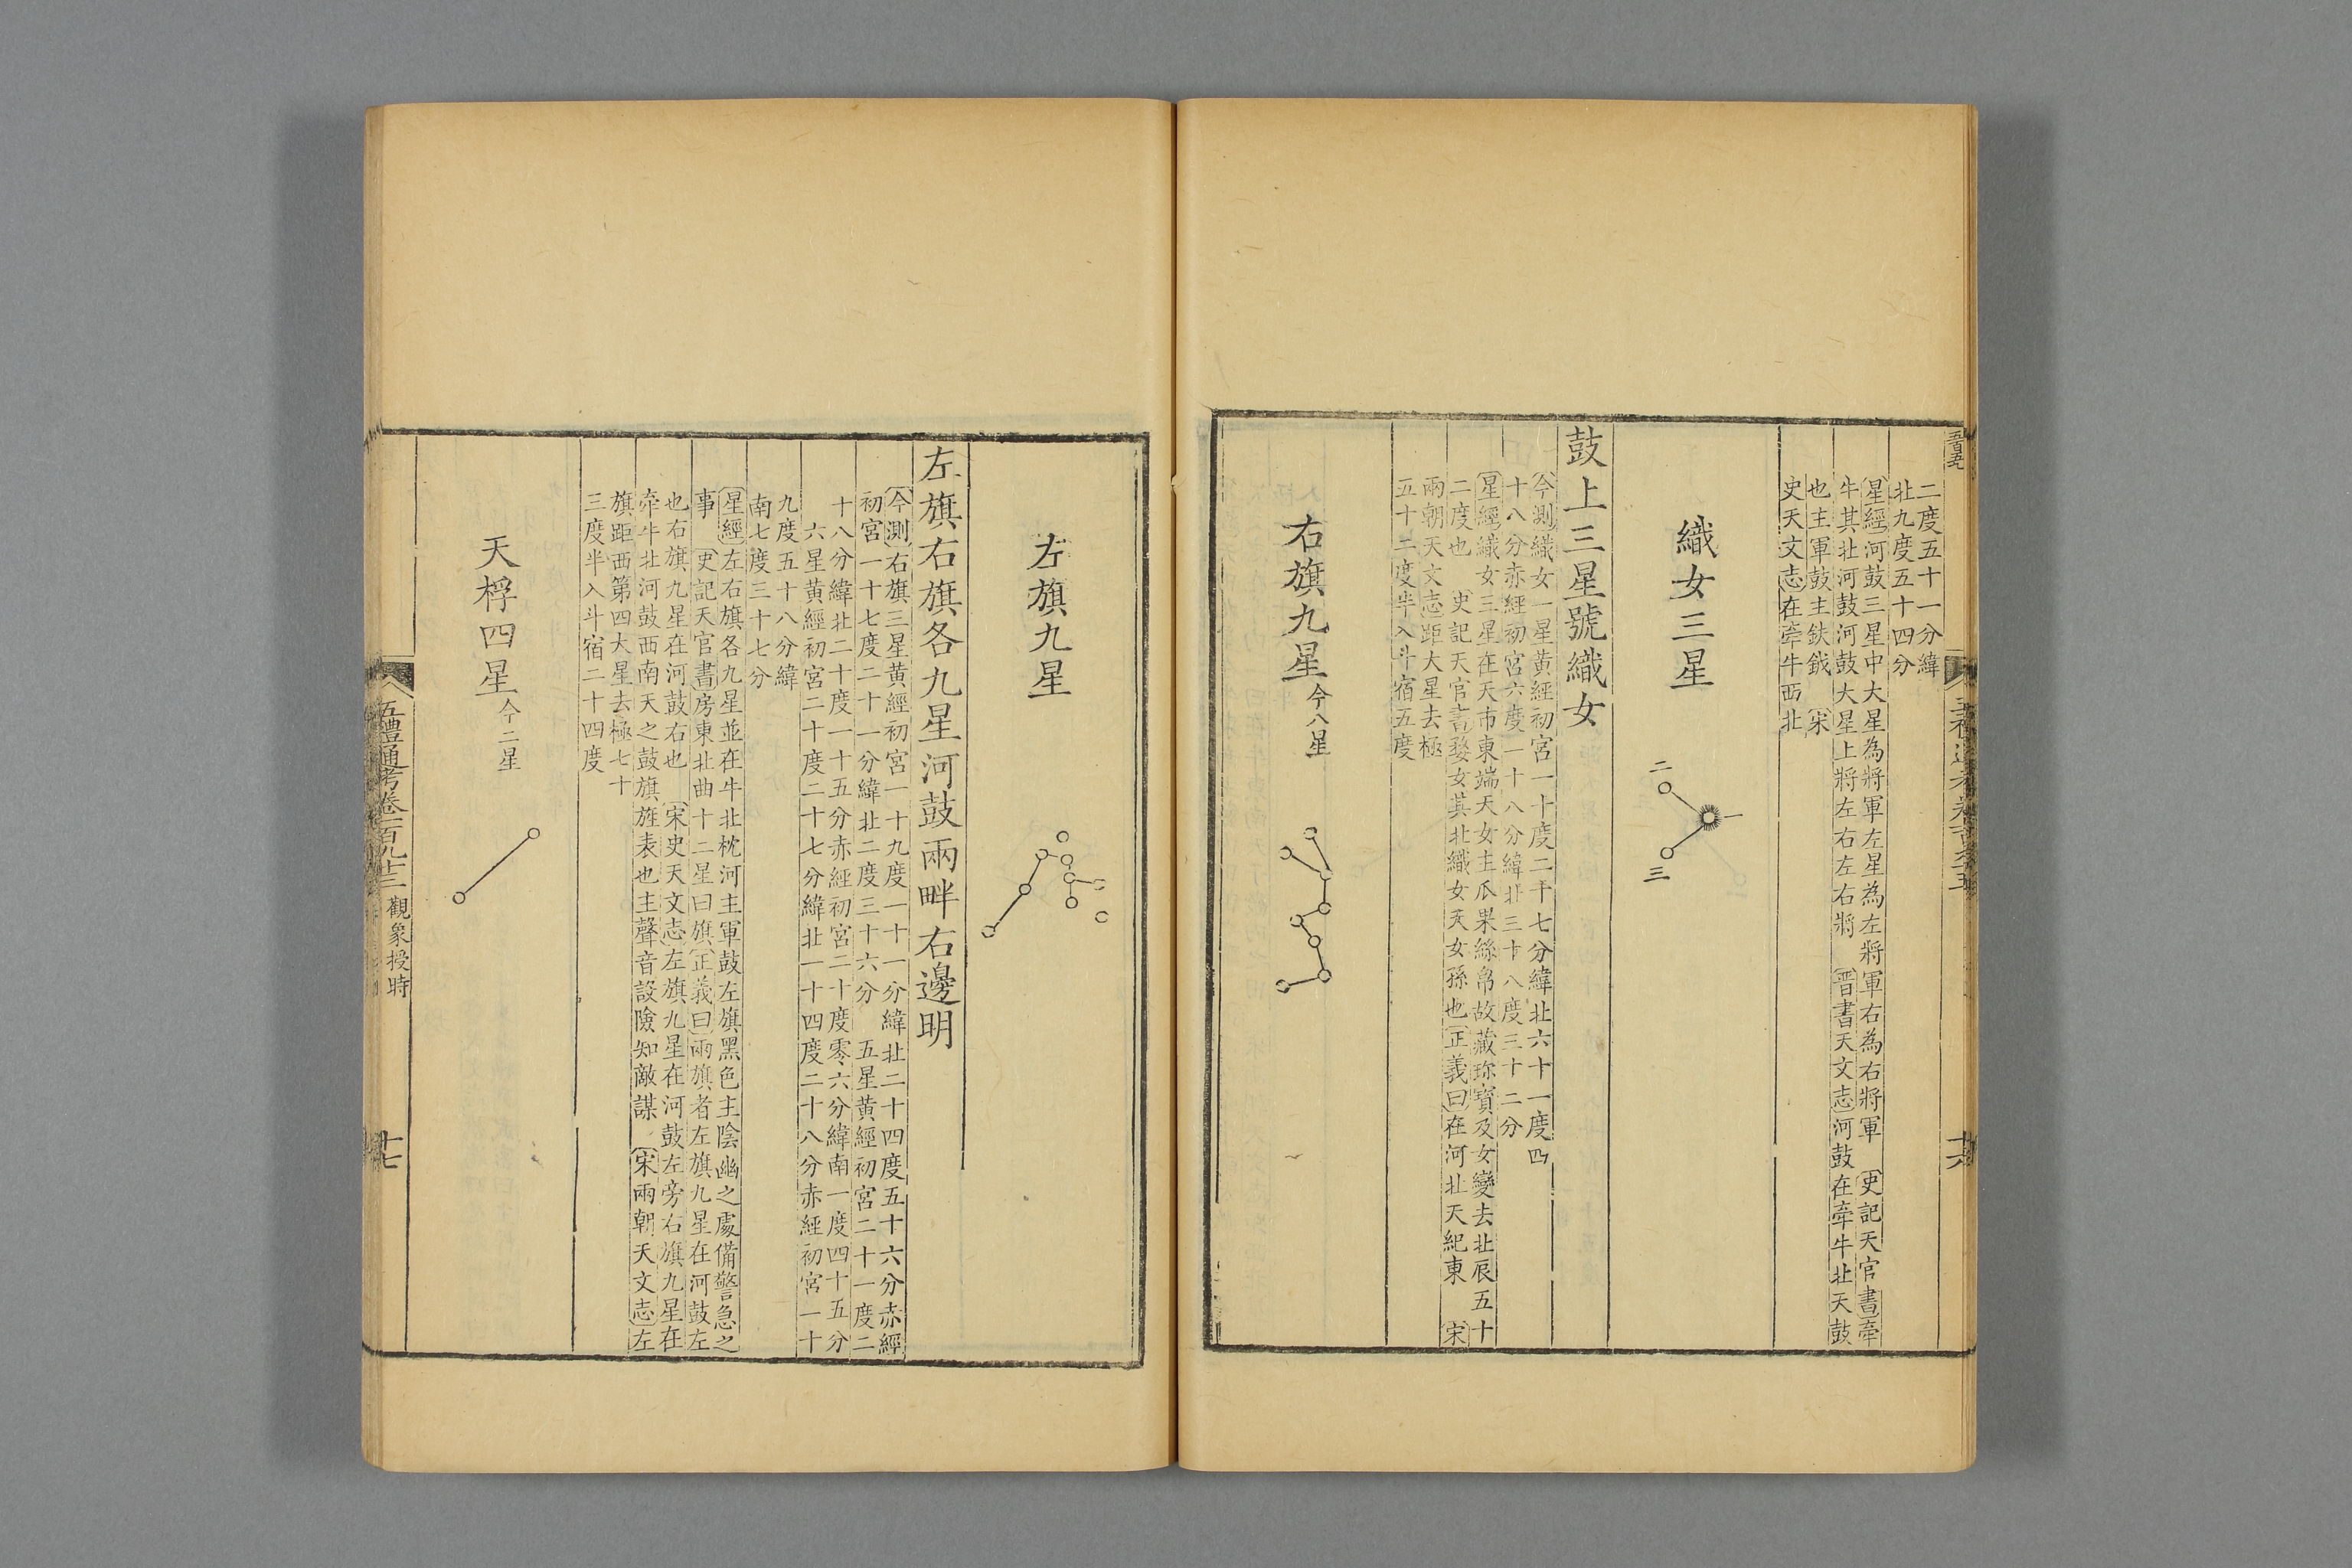 二度五十一分緯
北九度五十四分
星經河鼓三星中大星為將軍左星為左將軍右為右將軍　史記天官書牽
牛其北河鼓河鼓大星上將左右左右將　晋書天文志河鼓在牽牛北天鼓
也主軍鼓主鈇鉞　宋
史天文志在牽牛西北
織女三星
一
二
三
鼓上三星號織女
今測織女一星黃經初宮一十度二十七分緯北六十一度四
十八分赤經初宮六度一十八分緯北三十八度三十二分
星經織女三星在天市東端天女主瓜果絲帛故藏珎寶及女變去北辰五十
二度也　史記天官書婺女其北織女天女孫也正義曰在河北天紀東　宋
兩朝天文志距大星去極
五十二度半入斗宿五度
右旗九星今八星
左旗九星
左旗右旗各九星河鼓兩畔右邊明
今測右旗三星黃經初宮一十九度一十一分緯北二十四度五十六分赤經
初宮一十七度二十一分緯北二度三十六分　五星黃經初宮二十一度二
十八分緯北二十度一十五分赤經初宮二十度零六分緯南一度四十五分
六星黃經初宮二十度二十七分緯北一十四度二十八分赤經初宮一十
九度五十八分緯
南七度三十七分
星經左右旗各九星並在牛北枕河主軍鼓左旗黑色主陰幽之處備警急之
事　史記天官書房東北曲十二星曰旗正義曰兩旗者左旗九星在河鼓左
也右旗九星在河鼓右也　宋史天文志左旗九星在河鼓左旁右旗九星在
牽牛北河鼓西南天之鼓旗旌表也主聲音設險知敵謀　宋兩朝天文志左
旗距西第四大星去極七十
三度半入斗宿二十四度
天桴四星今二星
五禮通考卷一百九十二　觀象授時
十七